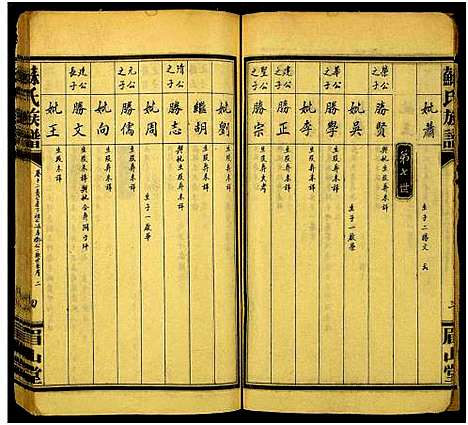 蘇氏族譜
眉山堂
妣蕭 生子二 勝文
第七世
榮公之子 勝賢 生歿葬未詳
妣吳 生歿葬未詳 生子一啟榮
華公之子 勝學 生歿葬未詳
妣李 生歿葬未詳
達公之子 勝正 生歿葬未詳
聖公之子 勝宗 生歿葬失考
妣劉 生歿葬未詳
繼胡 生歿葬未詳
清公之子 勝志 與妣生歿葬未詳
妣周 生子一啟華
元公之子 勝儒 生歿葬未詳
妣向 生歿葬未詳
達公長子 勝文
妣王 生歿未詳
蘇氏族譜
眉山堂